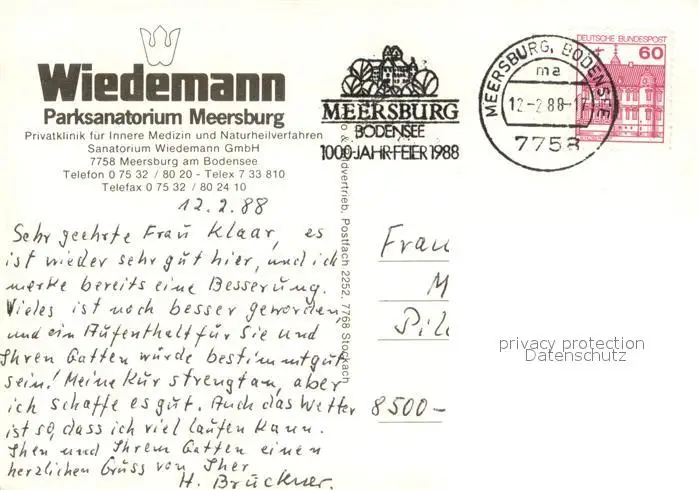 Wiedemann
Parksanatorium Meersburg
Privatklinik für Innere Medizin und Naturheilverfahren
Sanatorium Wiedemann GmbH
7758 Meersburg am Bodensee
Telefon 0 75 32 / 80 20 - Telex 7 33 810
Telefax 0 75 32 / 80 24 10
MEERSBURG
BODENSEE
1000-JAHR-FEIER 1988
MEERSBURG, BODENSEE
ma
12.-2.88-17
7758
DEUTSCHE BUNDESPOST
60
12.2.88
Sehr geehrte Frau Klaar, es
ist wieder sehr gut hier, und ich
merke bereits eine Besserung.
Vieles ist noch besser geworden,
und ein Aufenthalt für Sie und
Ihren Gatten würde bestimmt gut
sein! Meine Kur strengt an, aber
ich schaffe es gut. Auch das Wetter
ist so, dass ich viel laufen kann.
Ihen und Ihrem Gatten einen
herzlichen Gruss von Iher
H. Brückner.
vertrieb, Postfach 2252, 7768 Stockach
Frau
M
Pil
8500-
privacy protection
Datenschutz